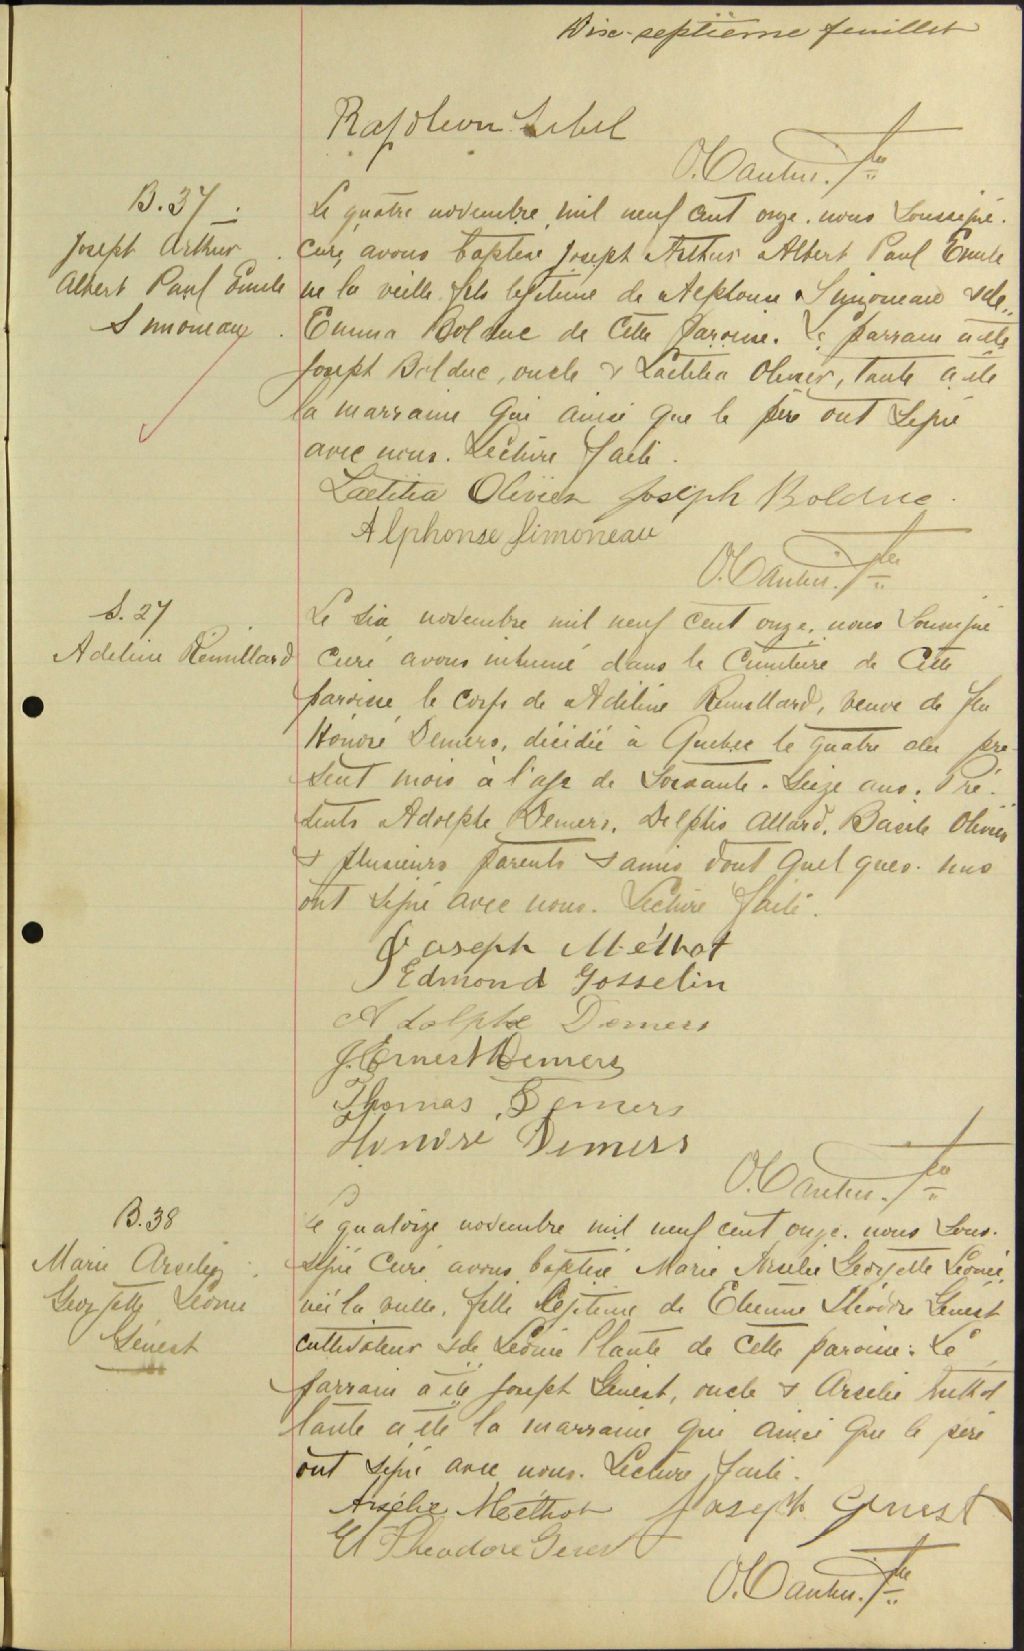 Dix-septième feuillet
Napoleon Lebel
O. Cantin. Ptre
B. 37
Joseph Arthur
Albert Paul Emile
Simoneau
Le quatre novembre mil neuf cent onze. nous Soussigné.
Curé, avons baptisé Joseph Arthur Albert Paul Emile
né la veille fils légitime de Alphonse Simoneau & de
Emma Bolduc de Cette paroisse. Le parrain a été
Joseph Bolduc, oncle & Laetitia Olivier, tante a été
la marraine qui ainsi que le père ont signé
avec nous. Lecture faite.
Laetitia Olivier Joseph Bolduc.
Alphonse Simoneau
O. Cantin. Ptre
S. 27
Adeline Rémillard
Le six novembre mil neuf cent onze, nous Soussigné
Curé avons inhumé dans le Cimetière de Cette
paroisse, le corps de Adéline Remillard, veuve de feu
Honoré Demers, décédée à Quebec le quatre du pre-
sent mois à l'age de Soixante. Seize ans. Pré-
sents Adolphe Demers, Delphis Allard, Basile Olivier
& plusieurs parents & amis dont quelques. uns
ont signé avec nous. Lecture faite.
Joseph Méthot
Edmond Gosselin
Adolphe Demers
J. Ernest Demers
Thomas Demers
Honoré Demers
O. Cantin. Ptre
B. 38
Marie Arselie
Georgette Léonie
Génest
Le quatorze novembre mil neuf cent onze. nous Sous.
signé Curé avons baptisé Marie Arselie Georgette Léonie
née la veille, fille légitime de Etienne Théodore Génest
cultivateur & de Léonie Plante de Cette paroisse. Le
parrain a été Joseph Génest, oncle & Arselie Méthot
tante a été la marraine qui ainsi que le père
ont signé avec nous. Lecture faite.
Arsélie Méthot Joseph Genest
Et Theodore Genest
O. Cantin. Ptre